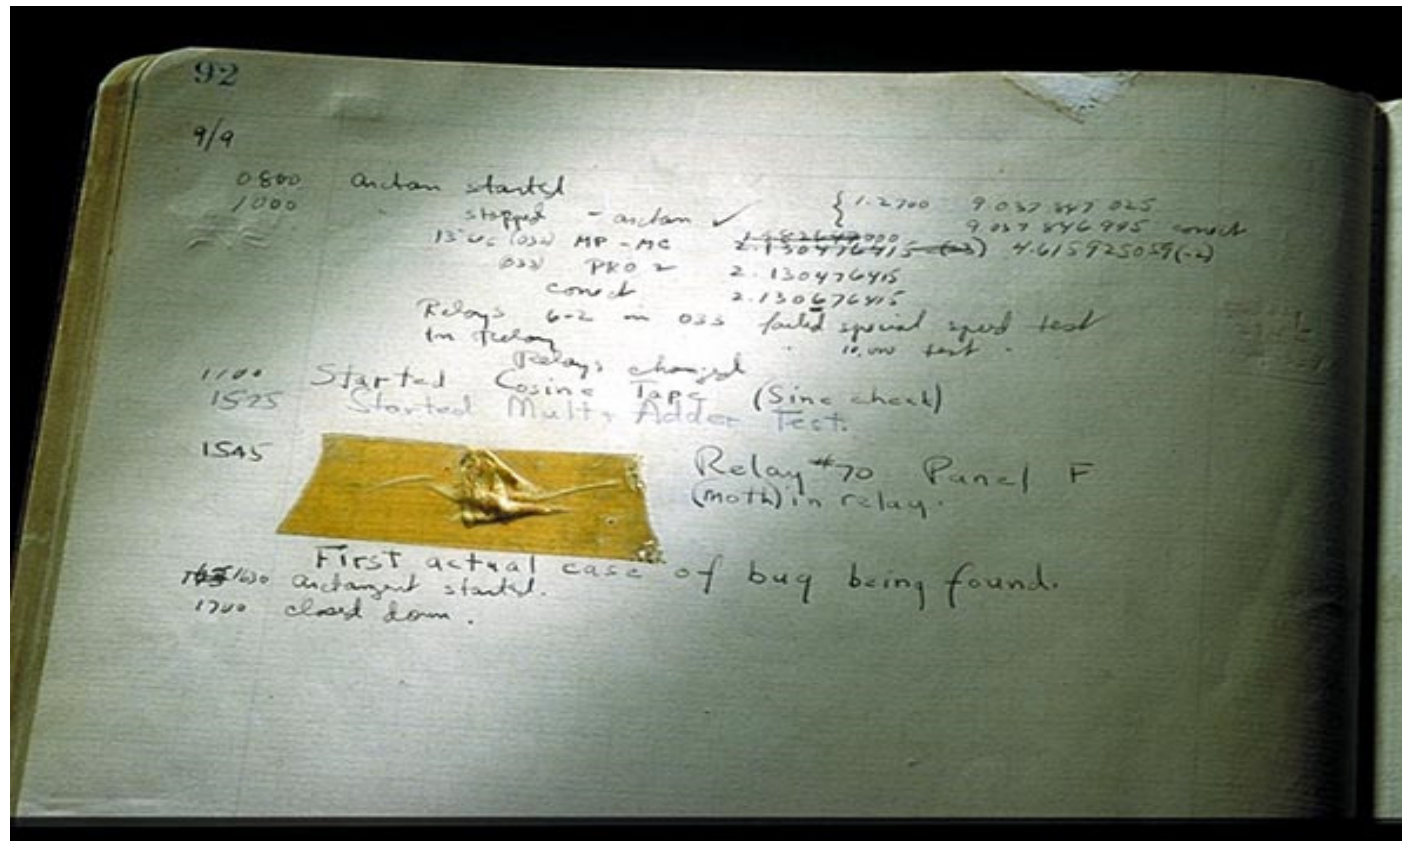 92
9/9
0800 arctan started
1000 stopped - arctan ✓ { 1.2700 9.037 847 025
9.037 846 995 correct
13"uc (032) MP - MC 2.130476415 4.615925059(-2)
(033) PRO 2 2.130476415
correct 2.130676415
Relays 6-2 in 033 failed special speed test
In Relay 10,000 test.
Relays changed
1100 Started Cosine Tape (Sine check)
1525 Started Mult+Adder Test.
1545 Relay #70 Panel F
(moth) in relay.
First actual case of bug being found.
1630 arctangent started.
1700 closed down.